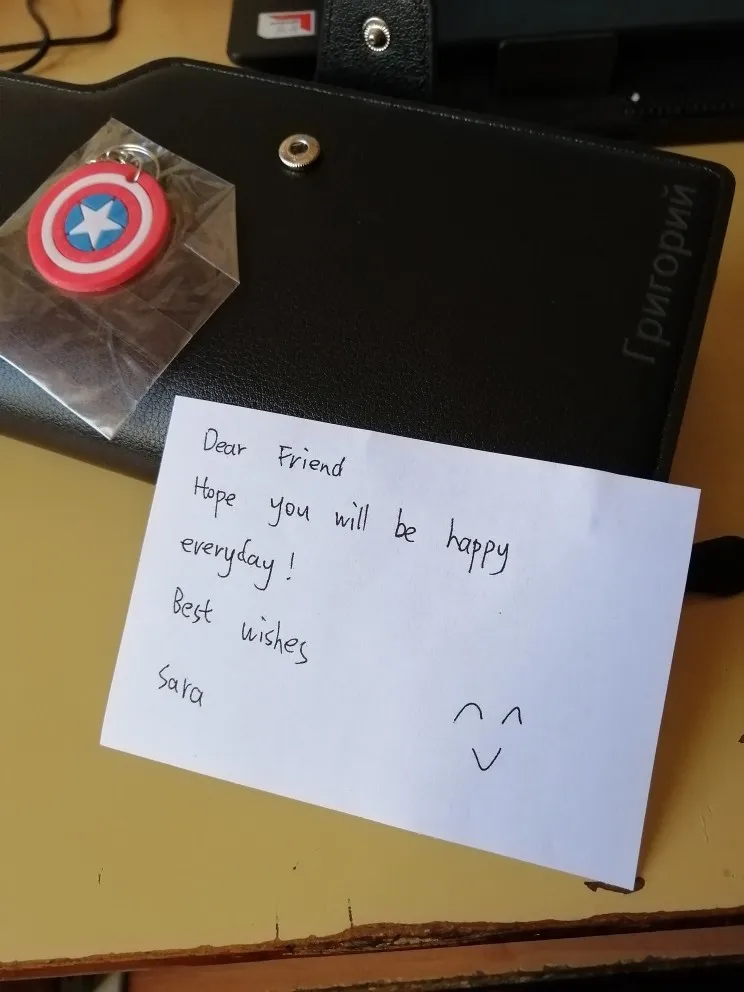 Григорий
Dear Friend
Hope you will be happy
everyday!
Best wishes
Sara